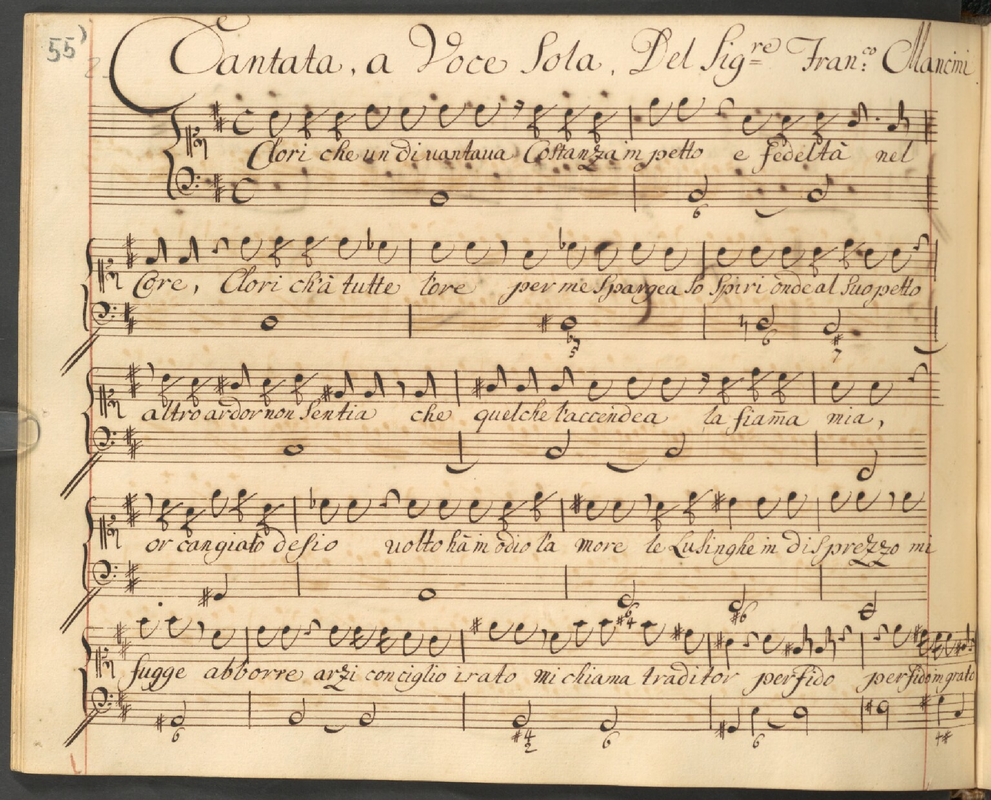 55)
Cantata, a Voce Sola, Del Sig.re Fran:co Mancini
Clori che un di uantaua Costanza in petto e fedeltà nel
6
Core, Clori ch'à tutte l'ore per me Spargea So Spiri onde al Suo petto
6
7
altro ardor non Sentia che quel che l'accendea la fiam̄a mia,
or cangiato desio uolto hà in odio l'a more le Lusinghe in disprezzo mi
#4 6 #6
fugge abborre arzi con ciglio irato mi chiama traditor perfido perfido ingrato
6 #4 2 6 6